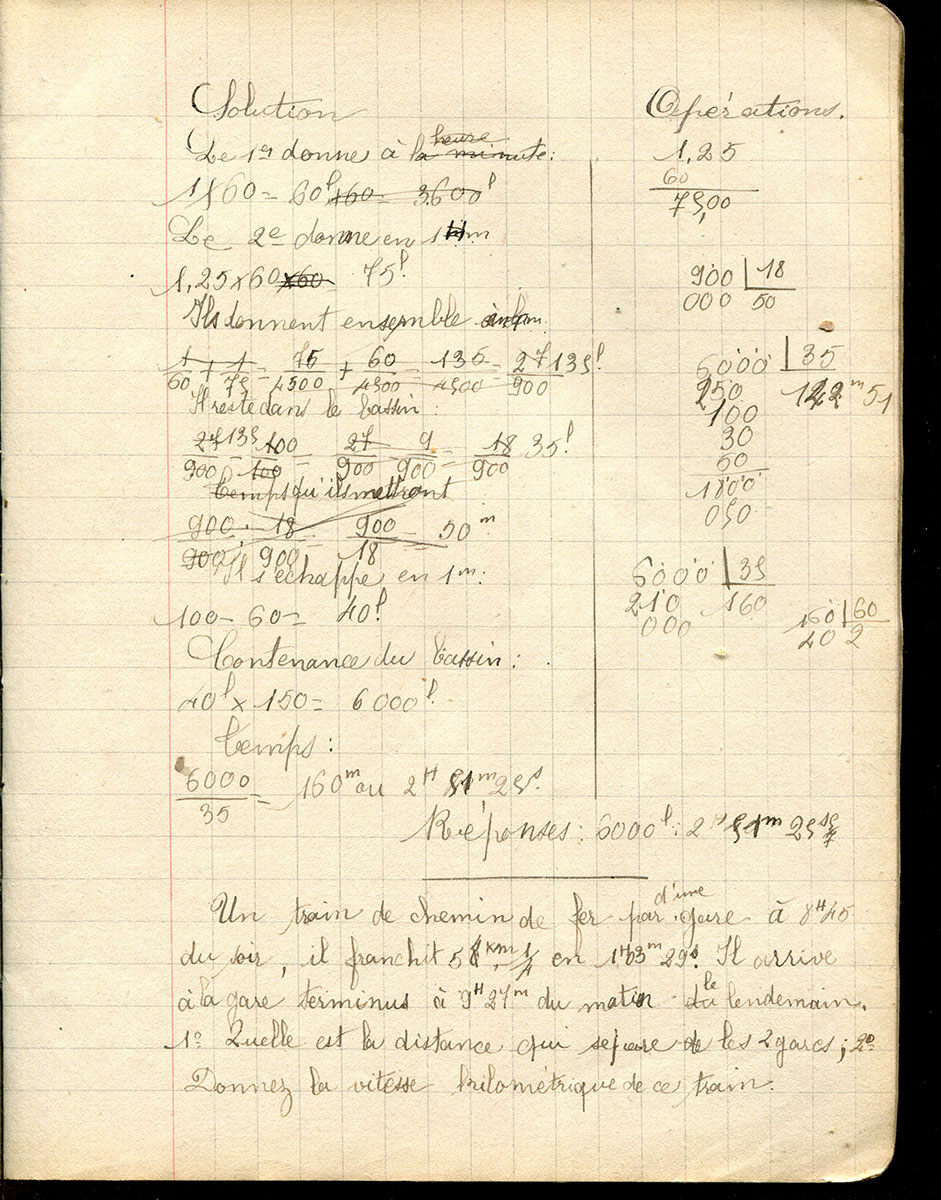 Solution
Le 1er donne à la minute: heure
1 x 60 = 60l x60 = 3.600l
Le 2e donne en 1 m
1,25 x 60 x60 75l
Ils donnent ensemble
1/60 + 1/75 = 75/4500 + 60/4500 = 135/4500 = 27/900 135l
Il reste dans le bassin :
27/900 135 - 100/100 = 27/900 - 9/900 = 18/900 35l
Temps qu'ils mettront
900/900 : 18/900 = 900/18 = 50m
Il s'échappe en 1m:
100 - 60 = 40l
Contenance du bassin :
40l x 150 = 6000l
Temps :
6000/35 = 160m ou 2H 51m 25s
Opérations.
1,25
60
75,00
900 | 18
000 50
6000 | 35
250 m 51
100
30
60
1800
050
6000 | 35
210 160
000
160 | 60
40 2
Réponses : 6000l : 2H 51m 25s
Un train de chemin de fer par d'une gare à 8H45
du soir, il franchit 58Km,1/4 en 1H3m 29s. Il arrive
à la gare terminus à 9H 27m du matin du le lendemain.
1o Quelle est la distance qui sépare de les 2 gares ; 2o
Donnez la vitesse kilométrique de ce train.